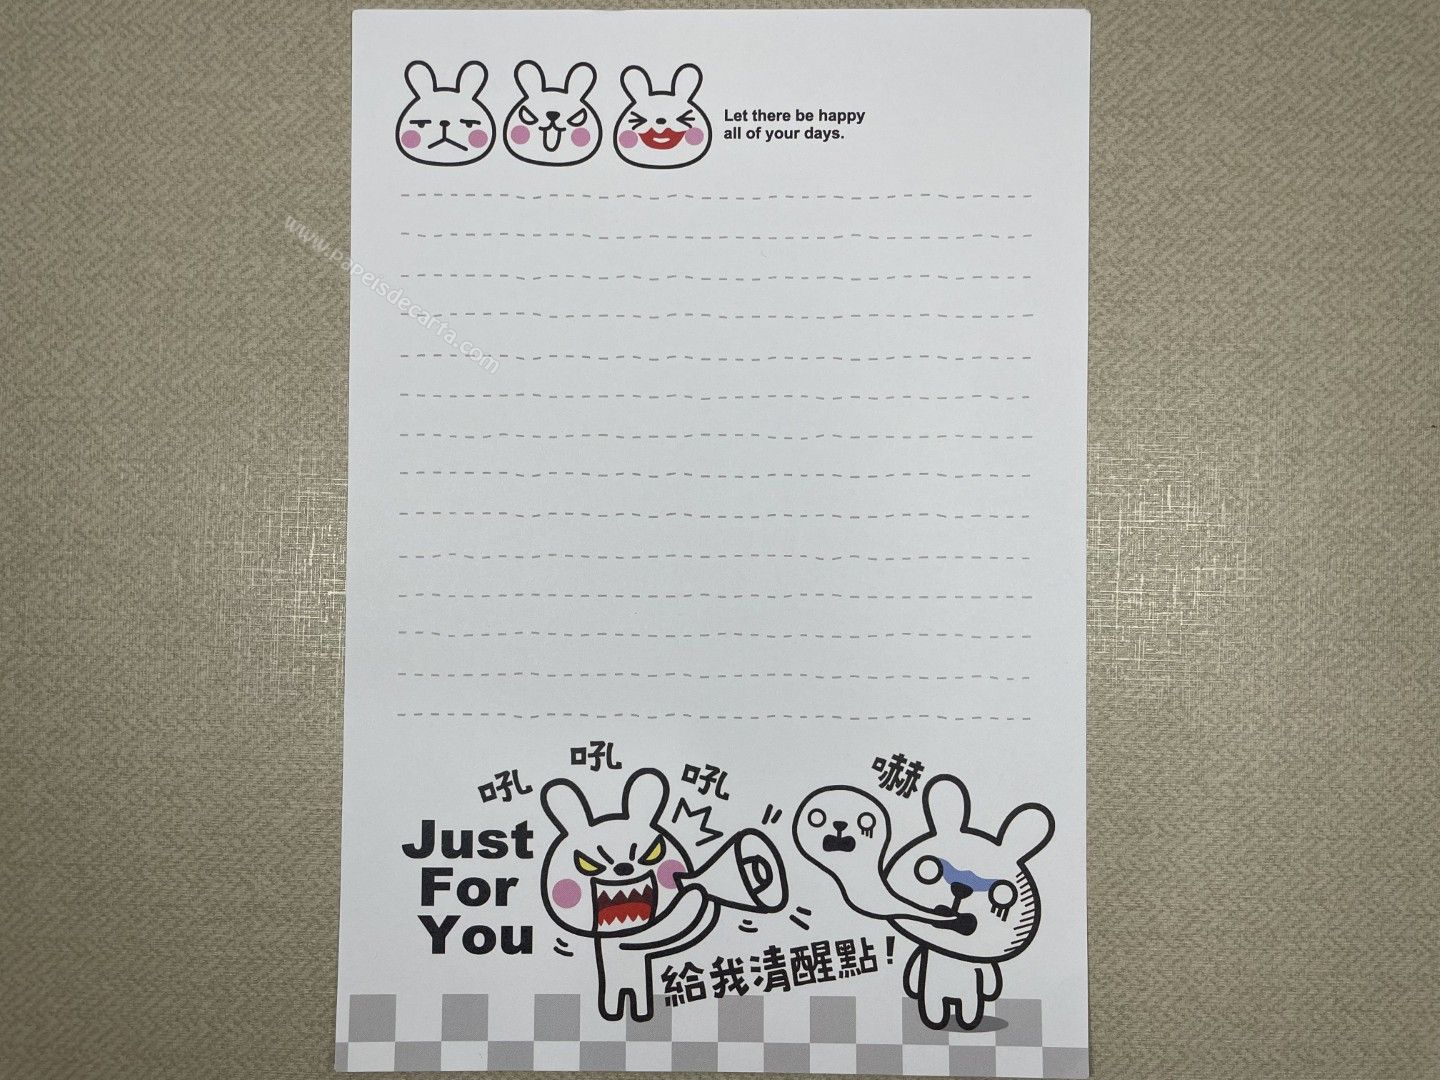 Let there be happy
all of your days.
www.papeisdecarta.com
吼
吼
吼
嚇
Just
For
You
給我清醒點!